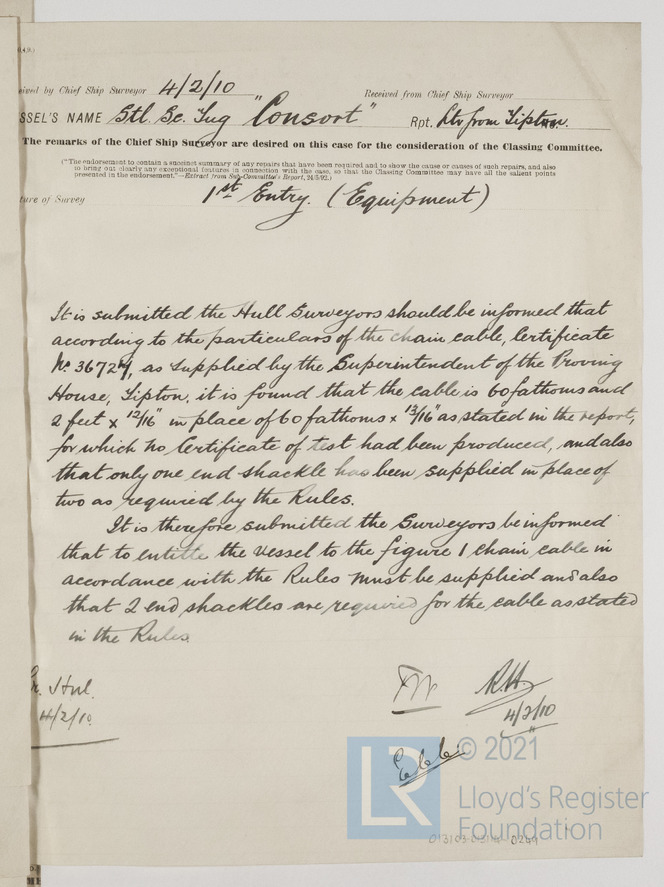 eived by Chief Ship Surveyor 4/2/10 Received from Chief Ship Surveyor
SSEL'S NAME Stl. Sc. Tug "Consort" Rpt. Ltr from Tipton.
The remarks of the Chief Ship Surveyor are desired on this case for the consideration of the Classing Committee.
("The endorsement to contain a succinct summary of any repairs that have been required and to show the cause or causes of such repairs, and also
to bring out clearly any exceptional features in connection with the case, so that the Classing Committee may have all the salient points
presented in the endorsement."—Extract from Sub-Committee's Report, 24/3/92.)
ture of Survey 1st Entry. (Equipment)
It is submitted the Hull Surveyors should be informed that
according to the particulars of the chain cable, Certificate
No. 36724, as supplied by the Superintendent of the Proving
House, Tipton, it is found that the cable is 60 fathoms and
2 feet x 12/16" in place of 60 fathoms x 13/16" as stated in the report,
for which no Certificate of test had been produced, and also
that only one end shackle has been supplied in place of
two as required by the Rules.
It is therefore submitted the Surveyors be informed
that to entitle the vessel to the figure 1 chain cable in
accordance with the Rules must be supplied and also
that 2 end shackles are required for the cable as stated
in the Rules.
Hul. R.H.
4/2/10 4/2/10
© 2021
LR
Lloyd's Register
Foundation
0269